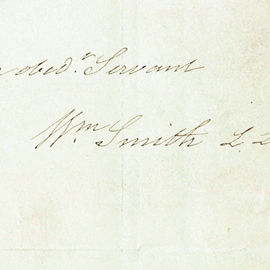 obedt. Servant
Wm Smith L